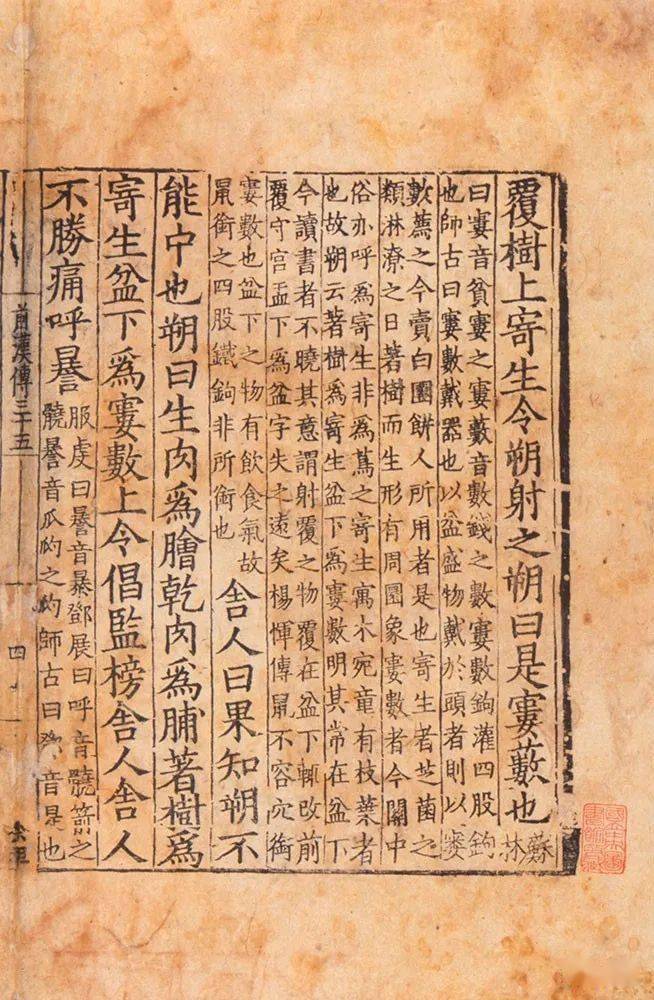 覆樹上寄生令朔射之朔曰是寠藪也蘇林
曰寠音貧寠之寠藪音數錢之數寠數鉤灌四股鉤
也師古曰寠數戴器也以盆盛物戴於頭者則以寠
數薦之今賣白團餅人所用者是也寄生者芝菌之
類淋潦之日著樹而生形有周圜象寠數者今關中
俗亦呼爲寄生非爲蔦之寄生寓木宛童有枝葉者
也故朔云著樹爲寄生盆下爲寠數明其常在盆下
今讀書者不曉其意謂射覆之物覆在盆下輒改前
覆守宮盂下爲盆字失之遠矣楊惲傳鼠不容穴銜
寠數也盆下之物有飲食氣故
鼠銜之四股鐵鉤非所銜也
舍人曰果知朔不
能中也朔曰生肉爲膾乾肉爲脯著樹爲
寄生盆下爲寠數上令倡監榜舍人舍人
不勝痛呼謈
服虔曰謈音暴鄧展曰呼音髐箭之
髐謈音瓜瓝之瓝師古曰鄧音是也
前漢傳三十五
四